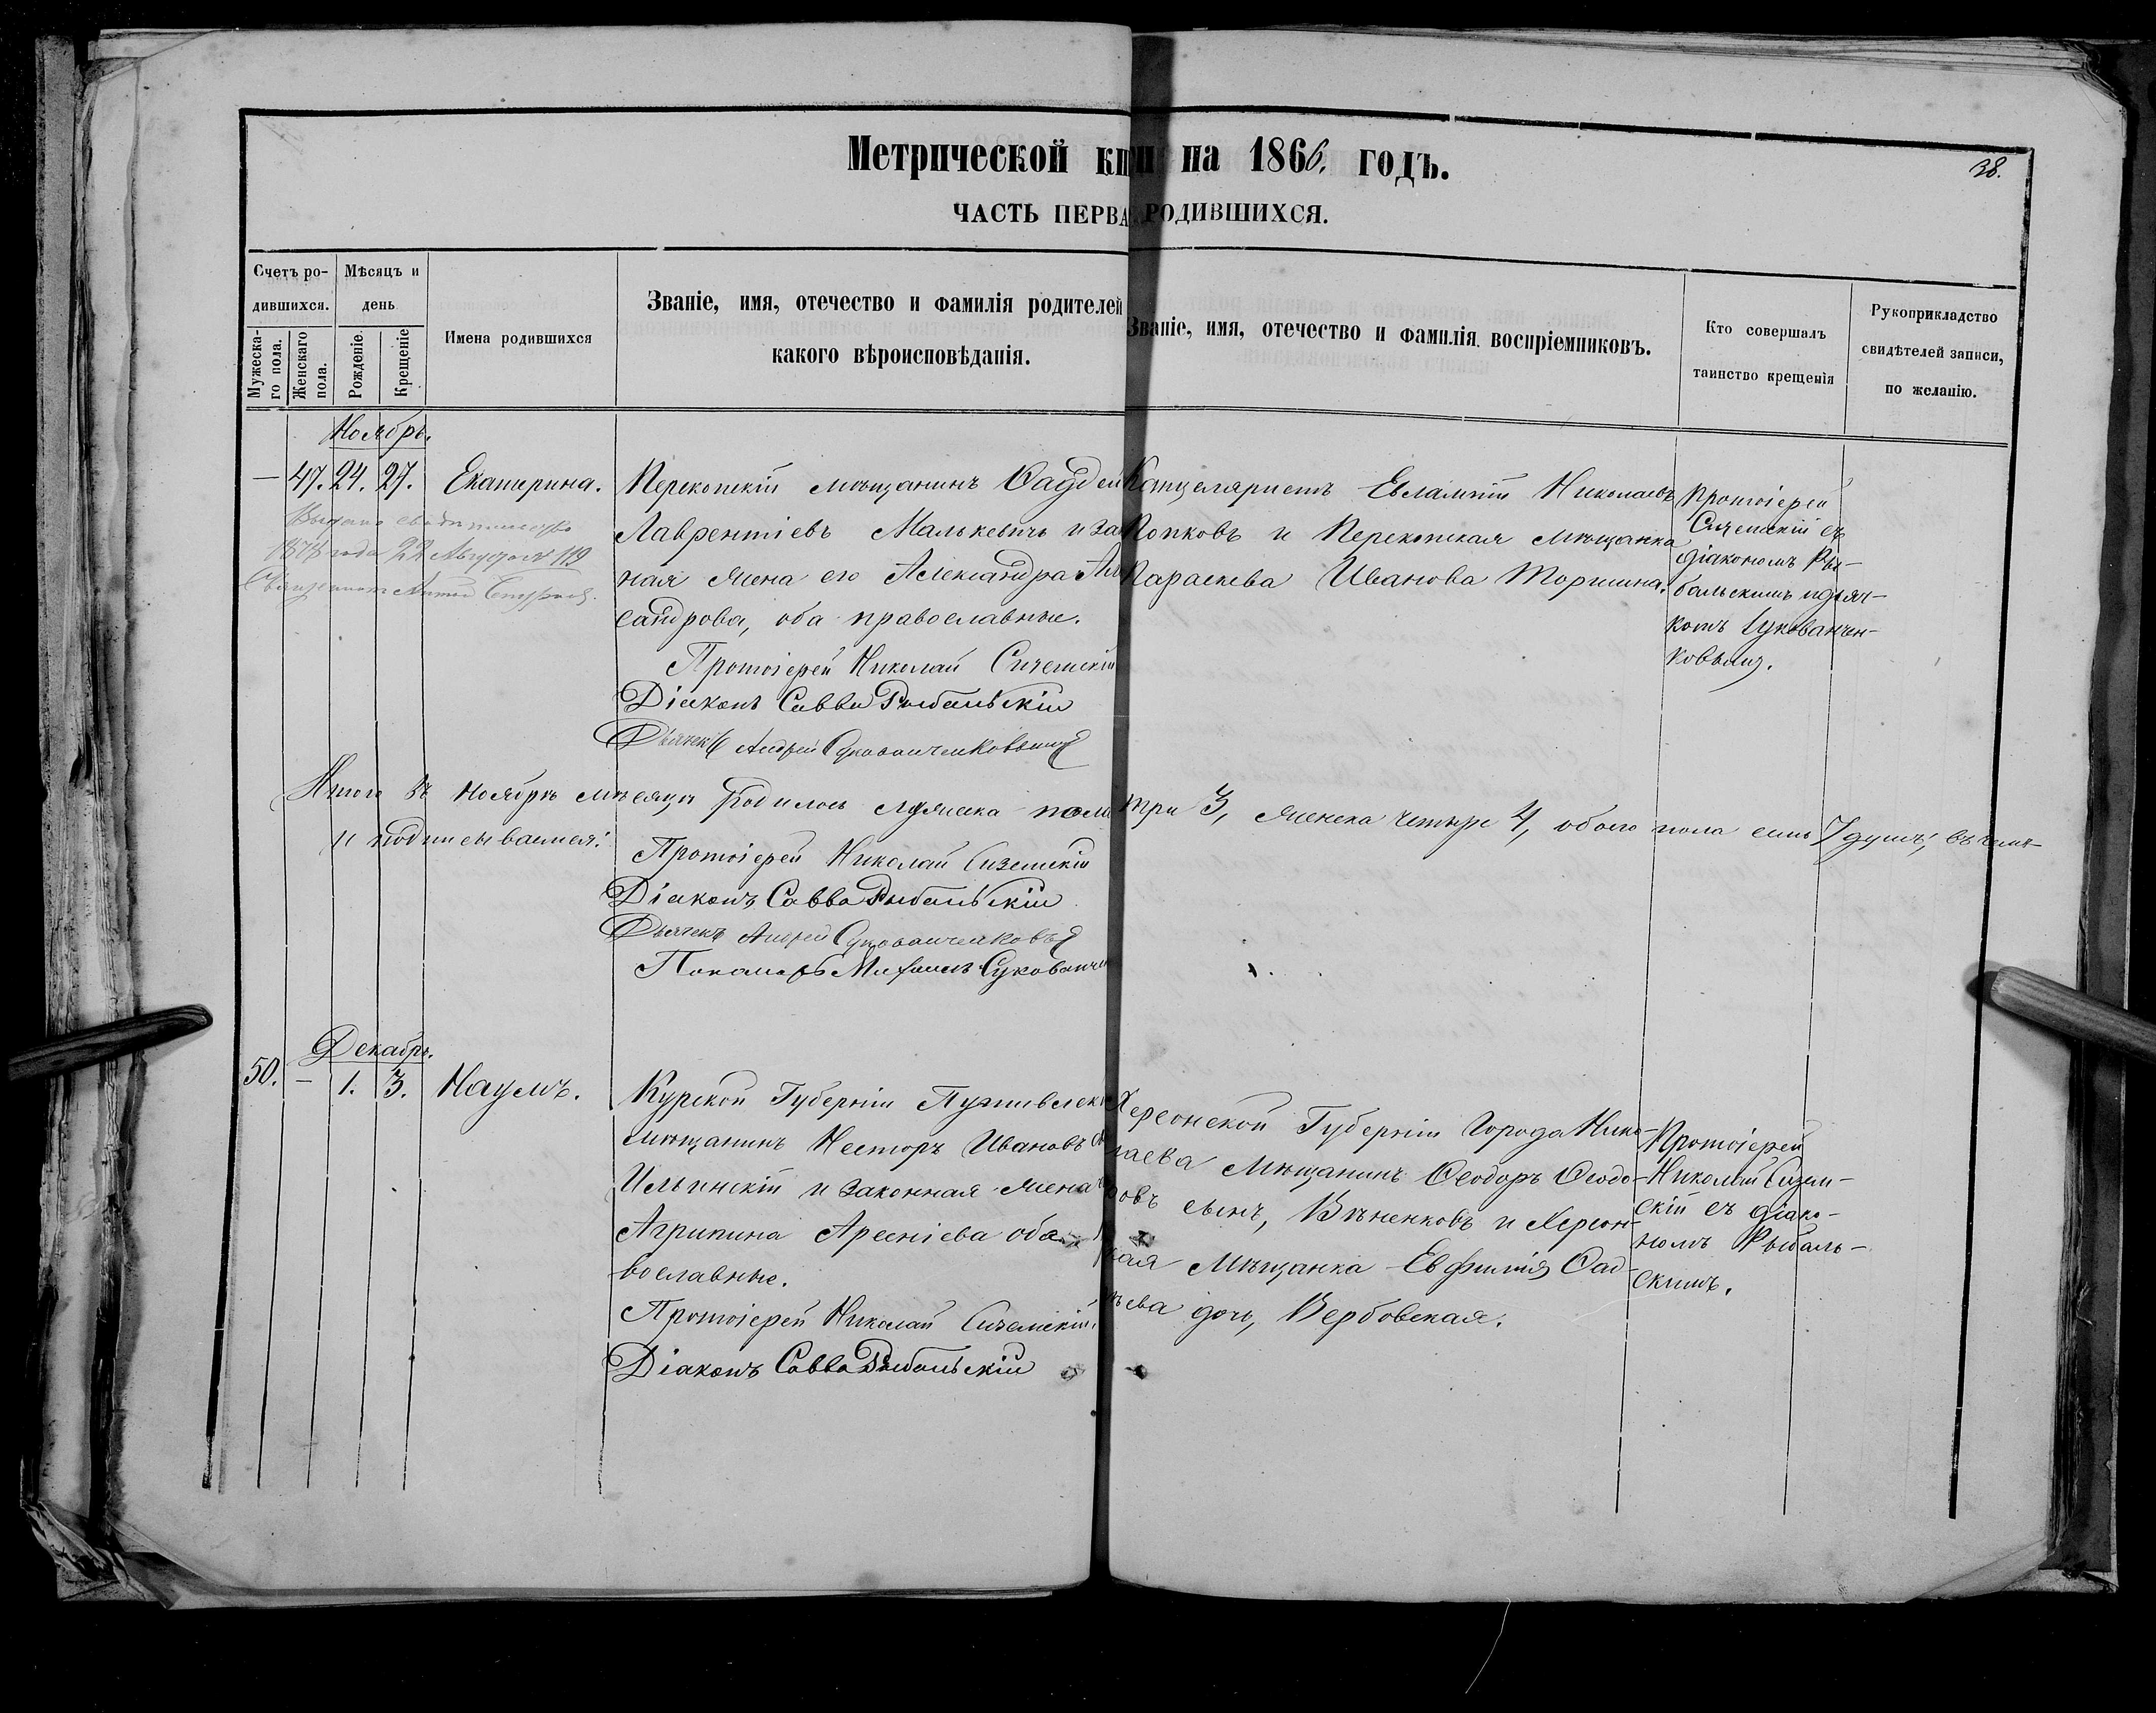 Метрической кни на 1866. годъ.
38.
ЧАСТЬ ПЕРВА РОДИВШИХСЯ.
Счетъ ро-
дившихся.
Мужеска-
го пола.
Женскаго
пола.
Мѣсяцъ и
день
Рожденіе.
Крещеніе
Имена родившихся
Званіе, имя, отечество и фамилія родителей
какого вѣроисповѣданія.
Званіе, имя, отечество и фамилія воспріемниковъ.
Кто совершалъ
таинство крещенія
Рукоприкладство
свидѣтелей записи,
по желанію.
Ноябрь.
— 47. 24. 27. Екатерина.
Выдано свидѣтельство
1878 года 22 Августа № 119
Священникъ
Перекопскій мѣщанинъ Фаддей
Лаврентіевъ Малькевичъ и за
ная жена его Александра Але
сандрова, оба православные.
Протоіерей Николай Сиземскій
Діаконъ Савва Рыбальскій
Дьячекъ Андрей Сукованченковъ
Канцеляристъ Евлампій Николаевъ
Попковъ и Перекопская мѣщанка
Параскева Иванова Торшина.
Протоіерей
Сиземскій съ
діакономъ Ры-
бальскимъ и дьяч-
комъ Сукованчен-
ковымъ.
Итого въ Ноябрѣ мѣсяцѣ родилось мужеска пола три 3, женска четыре 4, обоего пола семь 7 душъ; въ чемъ
и подписываемся:
Протоіерей Николай Сиземскій
Діаконъ Савва Рыбальскій
Дьячекъ Андрей Сукованченковъ
Пономарь Михаилъ Сукованчен
Декабрь.
50. — 1. 3. Наумъ.
Курской Губерніи Путивльск
мѣщанинъ Несторъ Ивановъ
Ильинскій и законная жена
Агрипина Арсеніева оба
вославные.
Протоіерей Николай Сиземскій.
Діаконъ Савва Рыбальскій
Херсонской Губерніи Города Нико-
лаева Мѣщанинъ Феодоръ Феодо-
ровъ сынъ, Вѣненковъ и Херсон-
кая Мѣщанка Евфимія Фад-
ѣева дочь, Вербовская.
Протоіерей
Николай Сизем-
скій съ діако-
номъ Рыбаль-
скимъ.